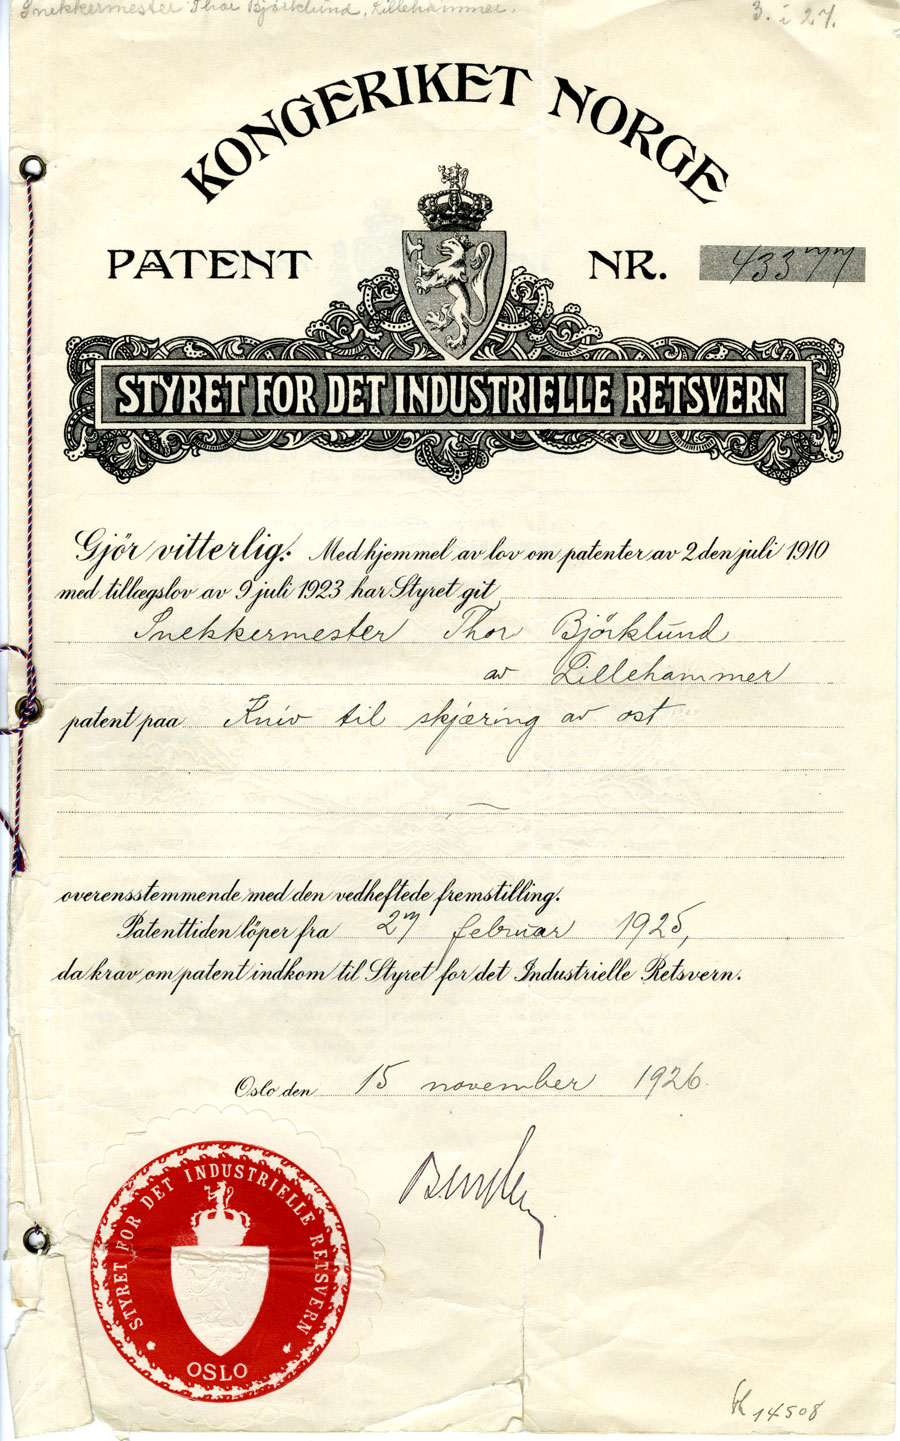 Snekkermester Thor Bjørklund, Lillehammer.
3. i 27.
KONGERIKET NORGE
PATENT NR. 43377
STYRET FOR DET INDUSTRIELLE RETSVERN
Gjör vitterlig: Med hjemmel av lov om patenter av 2 den juli 1910
med tillægslov av 9 juli 1923 har Styret git
Snekkermester Thor Björklund
av Lillehammer
patent paa Kniv til skjæring av ost
overensstemmende med den vedheftede fremstilling.
Patenttiden löper fra 27 februar 1925,
da krav om patent indkom til Styret for det Industrielle Retsvern.
Oslo den 15 november 1926.
STYRET FOR DET INDUSTRIELLE RETSVERN
OSLO
14508